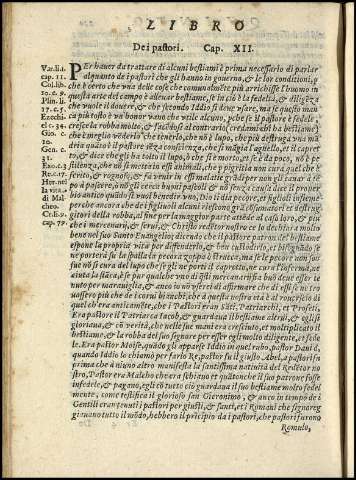 LIBRO
De i pastori. Cap. XII.
Var. li. 2.
cap. 11.
Col. lib.
10. c. 9.
Plin. li.
17. c. 5.
Ezechi-
el c. 34.
Gio. c.
10.
Gen. c.
31.
Exo. c. 3
Re. c. 17.
Hor. nel
la vita
di Mal-
cho.
Cr. li. 9.
cap. 79.
Per hauer da trattare di alcuni bestiami è prima necessario di parlar
alquanto de i pastori che gli hanno in gouerno, & le lor conditioni, p
che è certo che vna delle cose che communemente più arrichisce l'huomo in
questa arte del campo è alleuar bestiame, se in ciò è la fedeltà, & diligẽza
che vuole il douere, & che secondo Iddio si deue vsare, ma se questo man-
ca più tosto è vn honor vano che vtile alcuno, pche se il pastore è fedele,
crescerà molto la robba, & facẽdosi al contrario, credami ch'hà bestiami,
che è meglio vederli che hauerlo, che nõ è lupo, che più destruga vna mã
dria quanto il pastore sẽza conscienza, che si mãgia l'agnello, et il capret
to, & dice che gli ha tolto il lupo, ò che si è morto, et se è da poco, nõ è pe-
stilenza, che nõ si metta in essi animali, che p pigritia non cura quel che è
scorso, & rognoso, & fà venir in essi malatie grãdi per non gli saper da-
re più pascere, nõ gli cerca buoni pascoli & nõ senza causa dice il prouer
bio antico quando st vuol benedire vno, Iddio ti dia pecore, et figliuoli infiniti per-
che di pecore et anche de figliuoli alcuni riescono gràn dissipatori et destrug
gitori della robba, al fine per la maggior parte accade al casa loro, & più
che i mercenari, & serui, & Christo redẽtor nostro ce lo dechiara molto
bene nel suo Santo Euangelio, dicendo che il pastore patron del bestiame
espone la propria vita per diffenderlo, & ben custodirlo, et bisognando se
ne porterà su la spalla la pecora zoppa ò stracca, ma se le pecore non son
sue nõ si cura del lupo che se gli ne porti il capretto, ne cura s'è inferma, ne
s'ella è stàca, e se par qualche vno di questi mercenari sia buõ deue esser te
nuto per marauiglia, & anco io nõ vserei di affirmare che di essi se ne tro
uassero più che de i corui bianchi, che à questa nostra età è al rouescio di
quel ch'era anticamente, che i Pastori eran Santi, Patriarchi, et Profeti.
Era pastore il Patriarca Iacob, & guardaua il bestiame altrui, & egli si
gloriaua, & cõ verità, che nelle sue mani era cresciuto, et moltiplicato il
bestiame, & la robba del suo signore per esser egli molto diligente, et fede
le. Era pastor Moise, quando gli apparse Iddio in quel rubo, pastor Dauid,
quando Iddio lo chiamò per farlo Re, pastor fu il giusto Abel, a pastori fu
prima che à niuno altro manifesta la santissima natiuità del Redẽtor no
stro, Pastor era Malcho che era schiauo et quãtonche il suo patrone fosse
infedele, & pagano, egli cõ tutto ciò guardaua il suo bestiame molto fedel
mente, come testifica il glorioso san Gieronimo, & anco in tempo de i
Gentili eran tenuti i pastori per giusti, & santi, et i Romani che signoreg
giauano tutto il mõdo, hebbero il prĩcipio da i pastori, che pastori furono
Romulo,